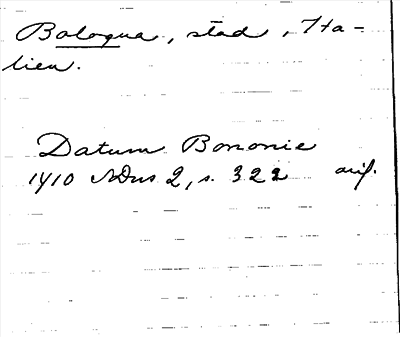 Bologna, stad, Ita-
lien.
Datum Bononie
1410 SDns 2, s. 322 avskr.